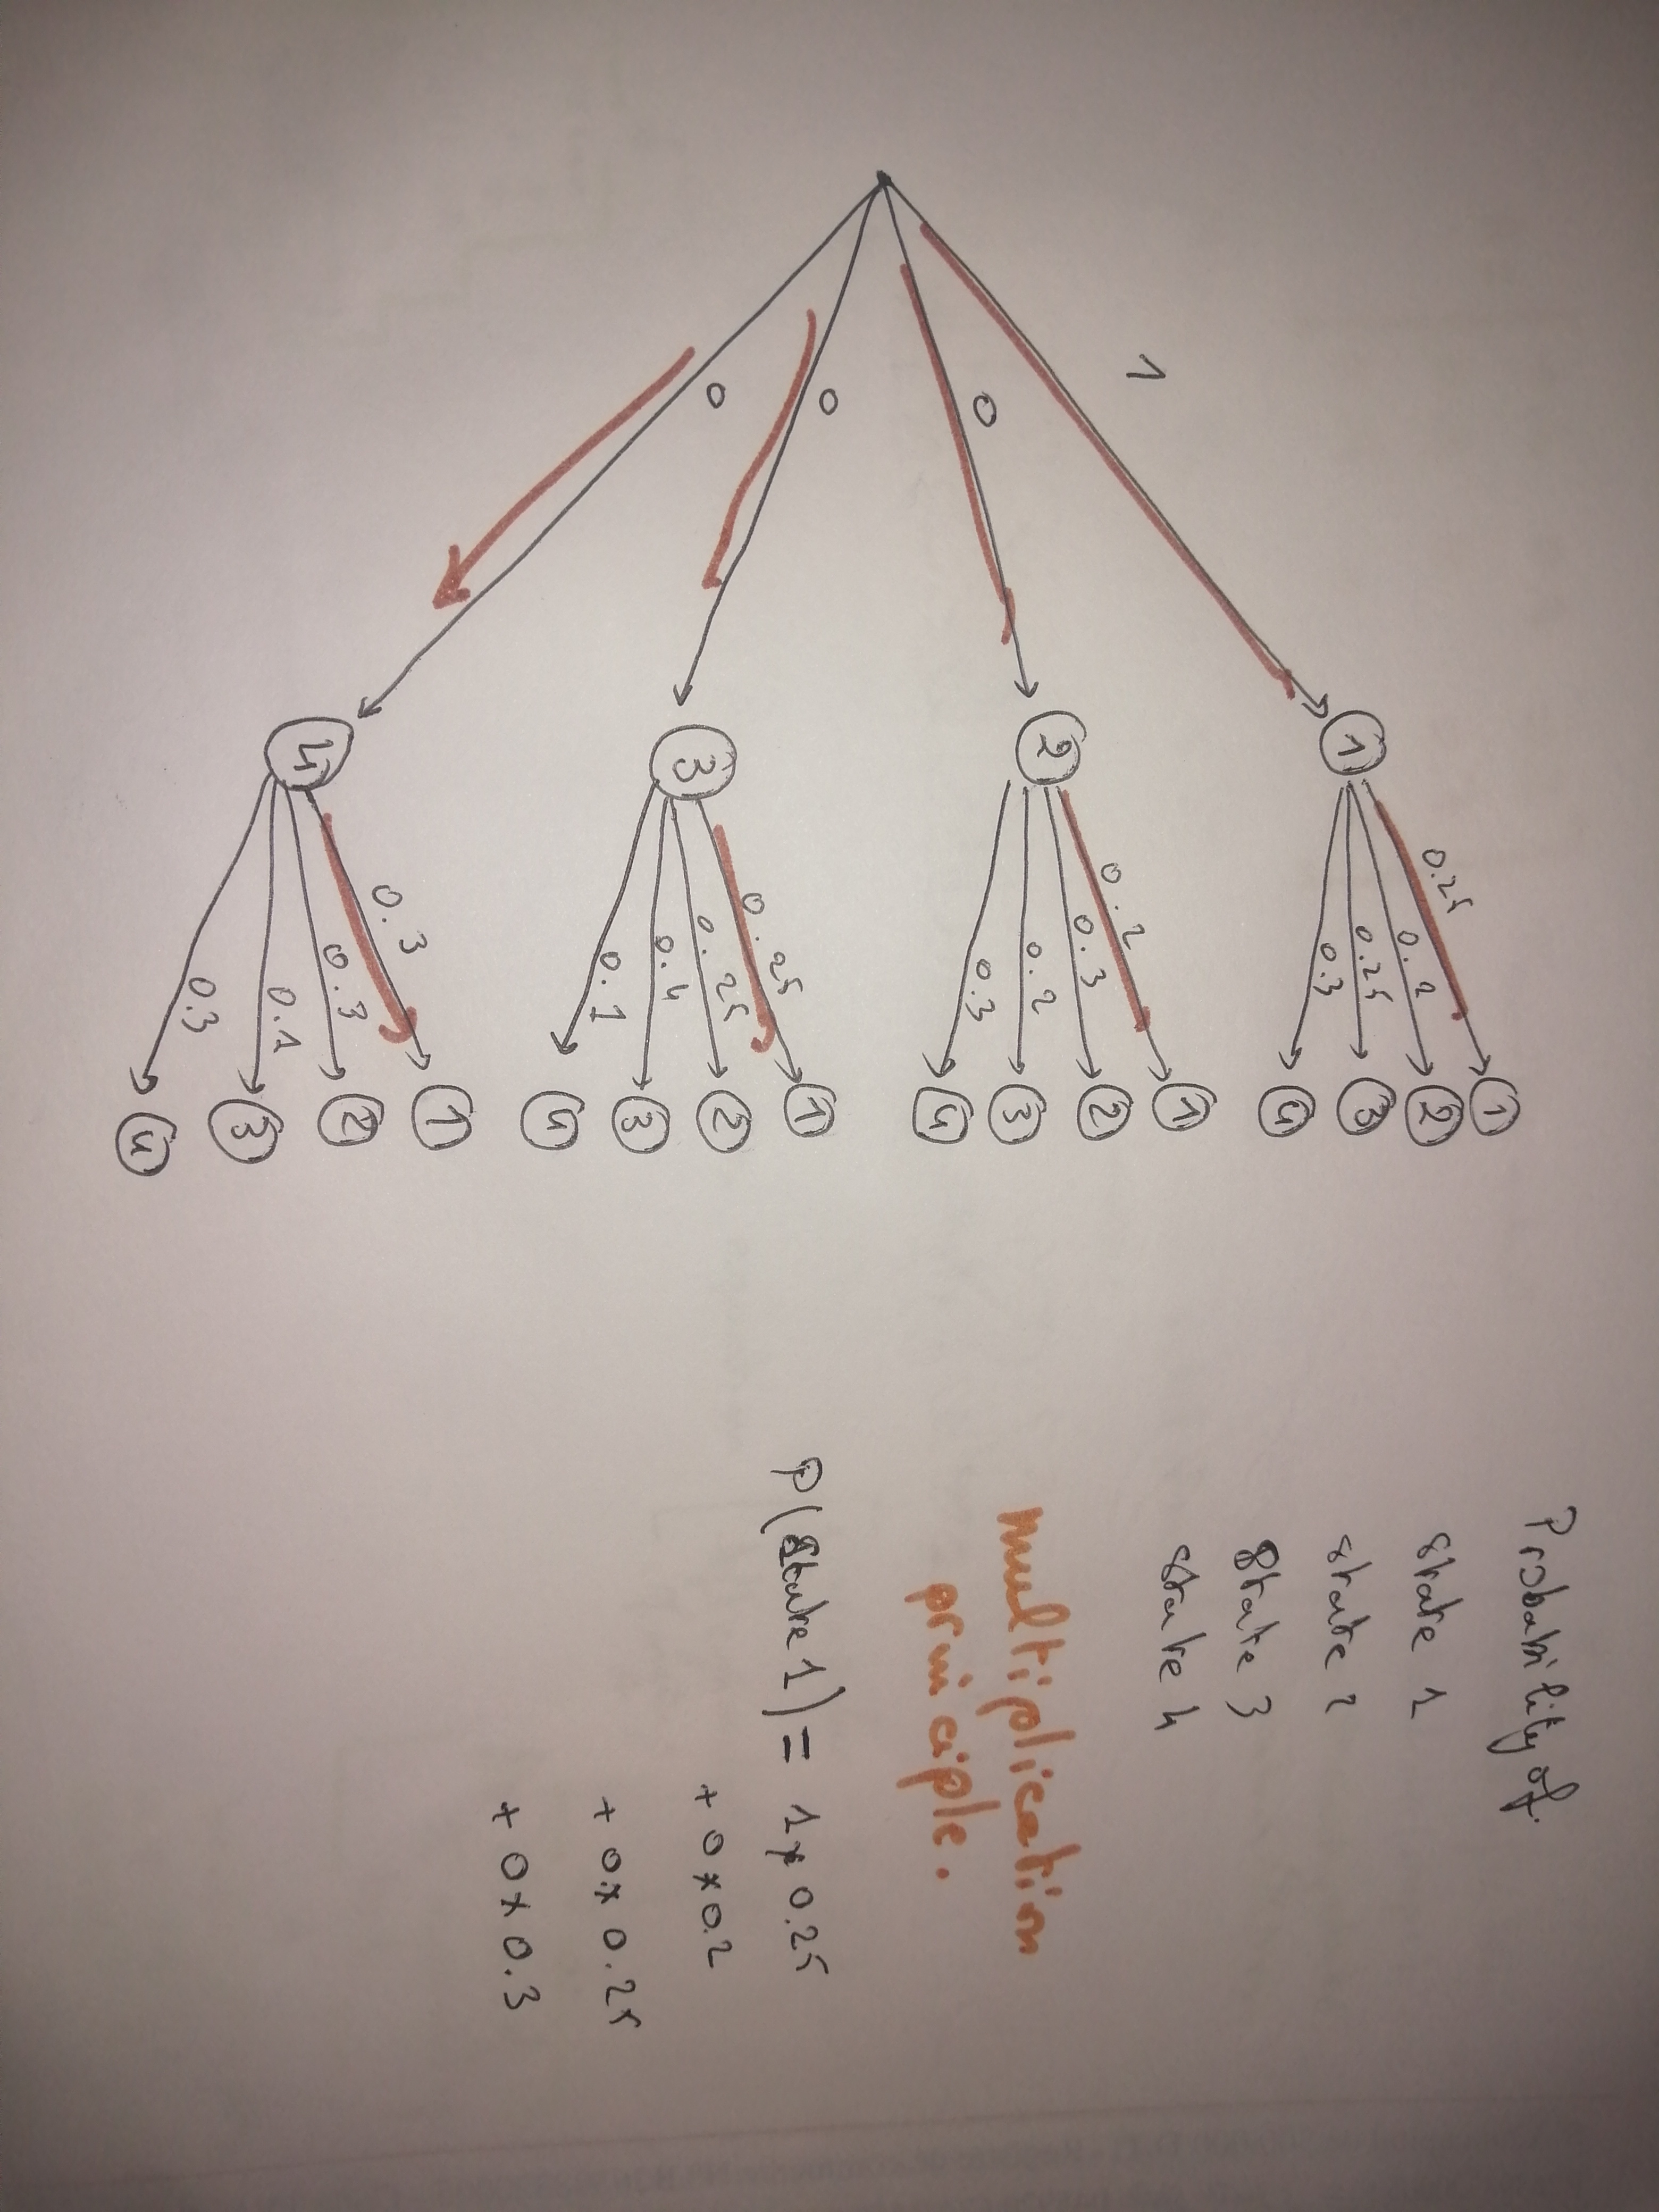 1
0
0
0
1
2
3
4
0.25
0.2
0.25
0.3
1
2
3
4
0.2
0.3
0.2
0.3
1
2
3
4
0.25
0.25
0.4
0.1
1
2
3
4
0.3
0.3
0.1
0.3
1
2
3
4
Probability of.
State 1
state 2
State 3
state 4
multiplication
principle.
P(State 1) = 1 x 0.25
+ 0 x 0.2
+ 0 x 0.25
+ 0 x 0.3